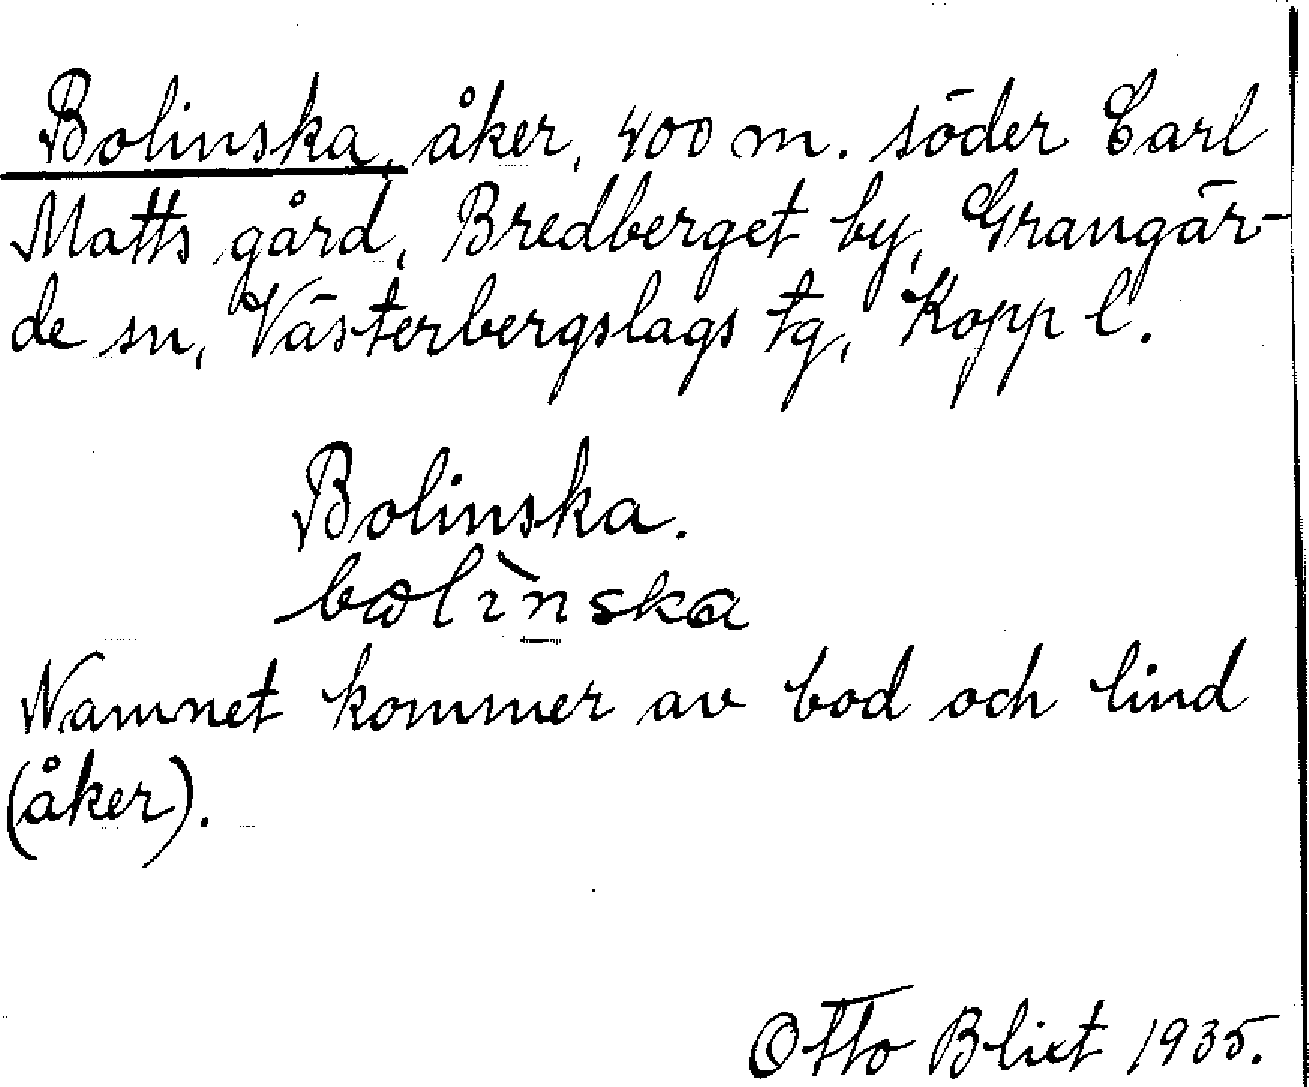 Bolinska, åker, 400 m. söder Carl
Matts gård, Bredberget by, Grangär-
de sn, Västerbergslags tg, Kopp l.
Bolinska.
bωlìnska
Namnet kommer av bod och lind
(åker).
Otto Blixt 1935.